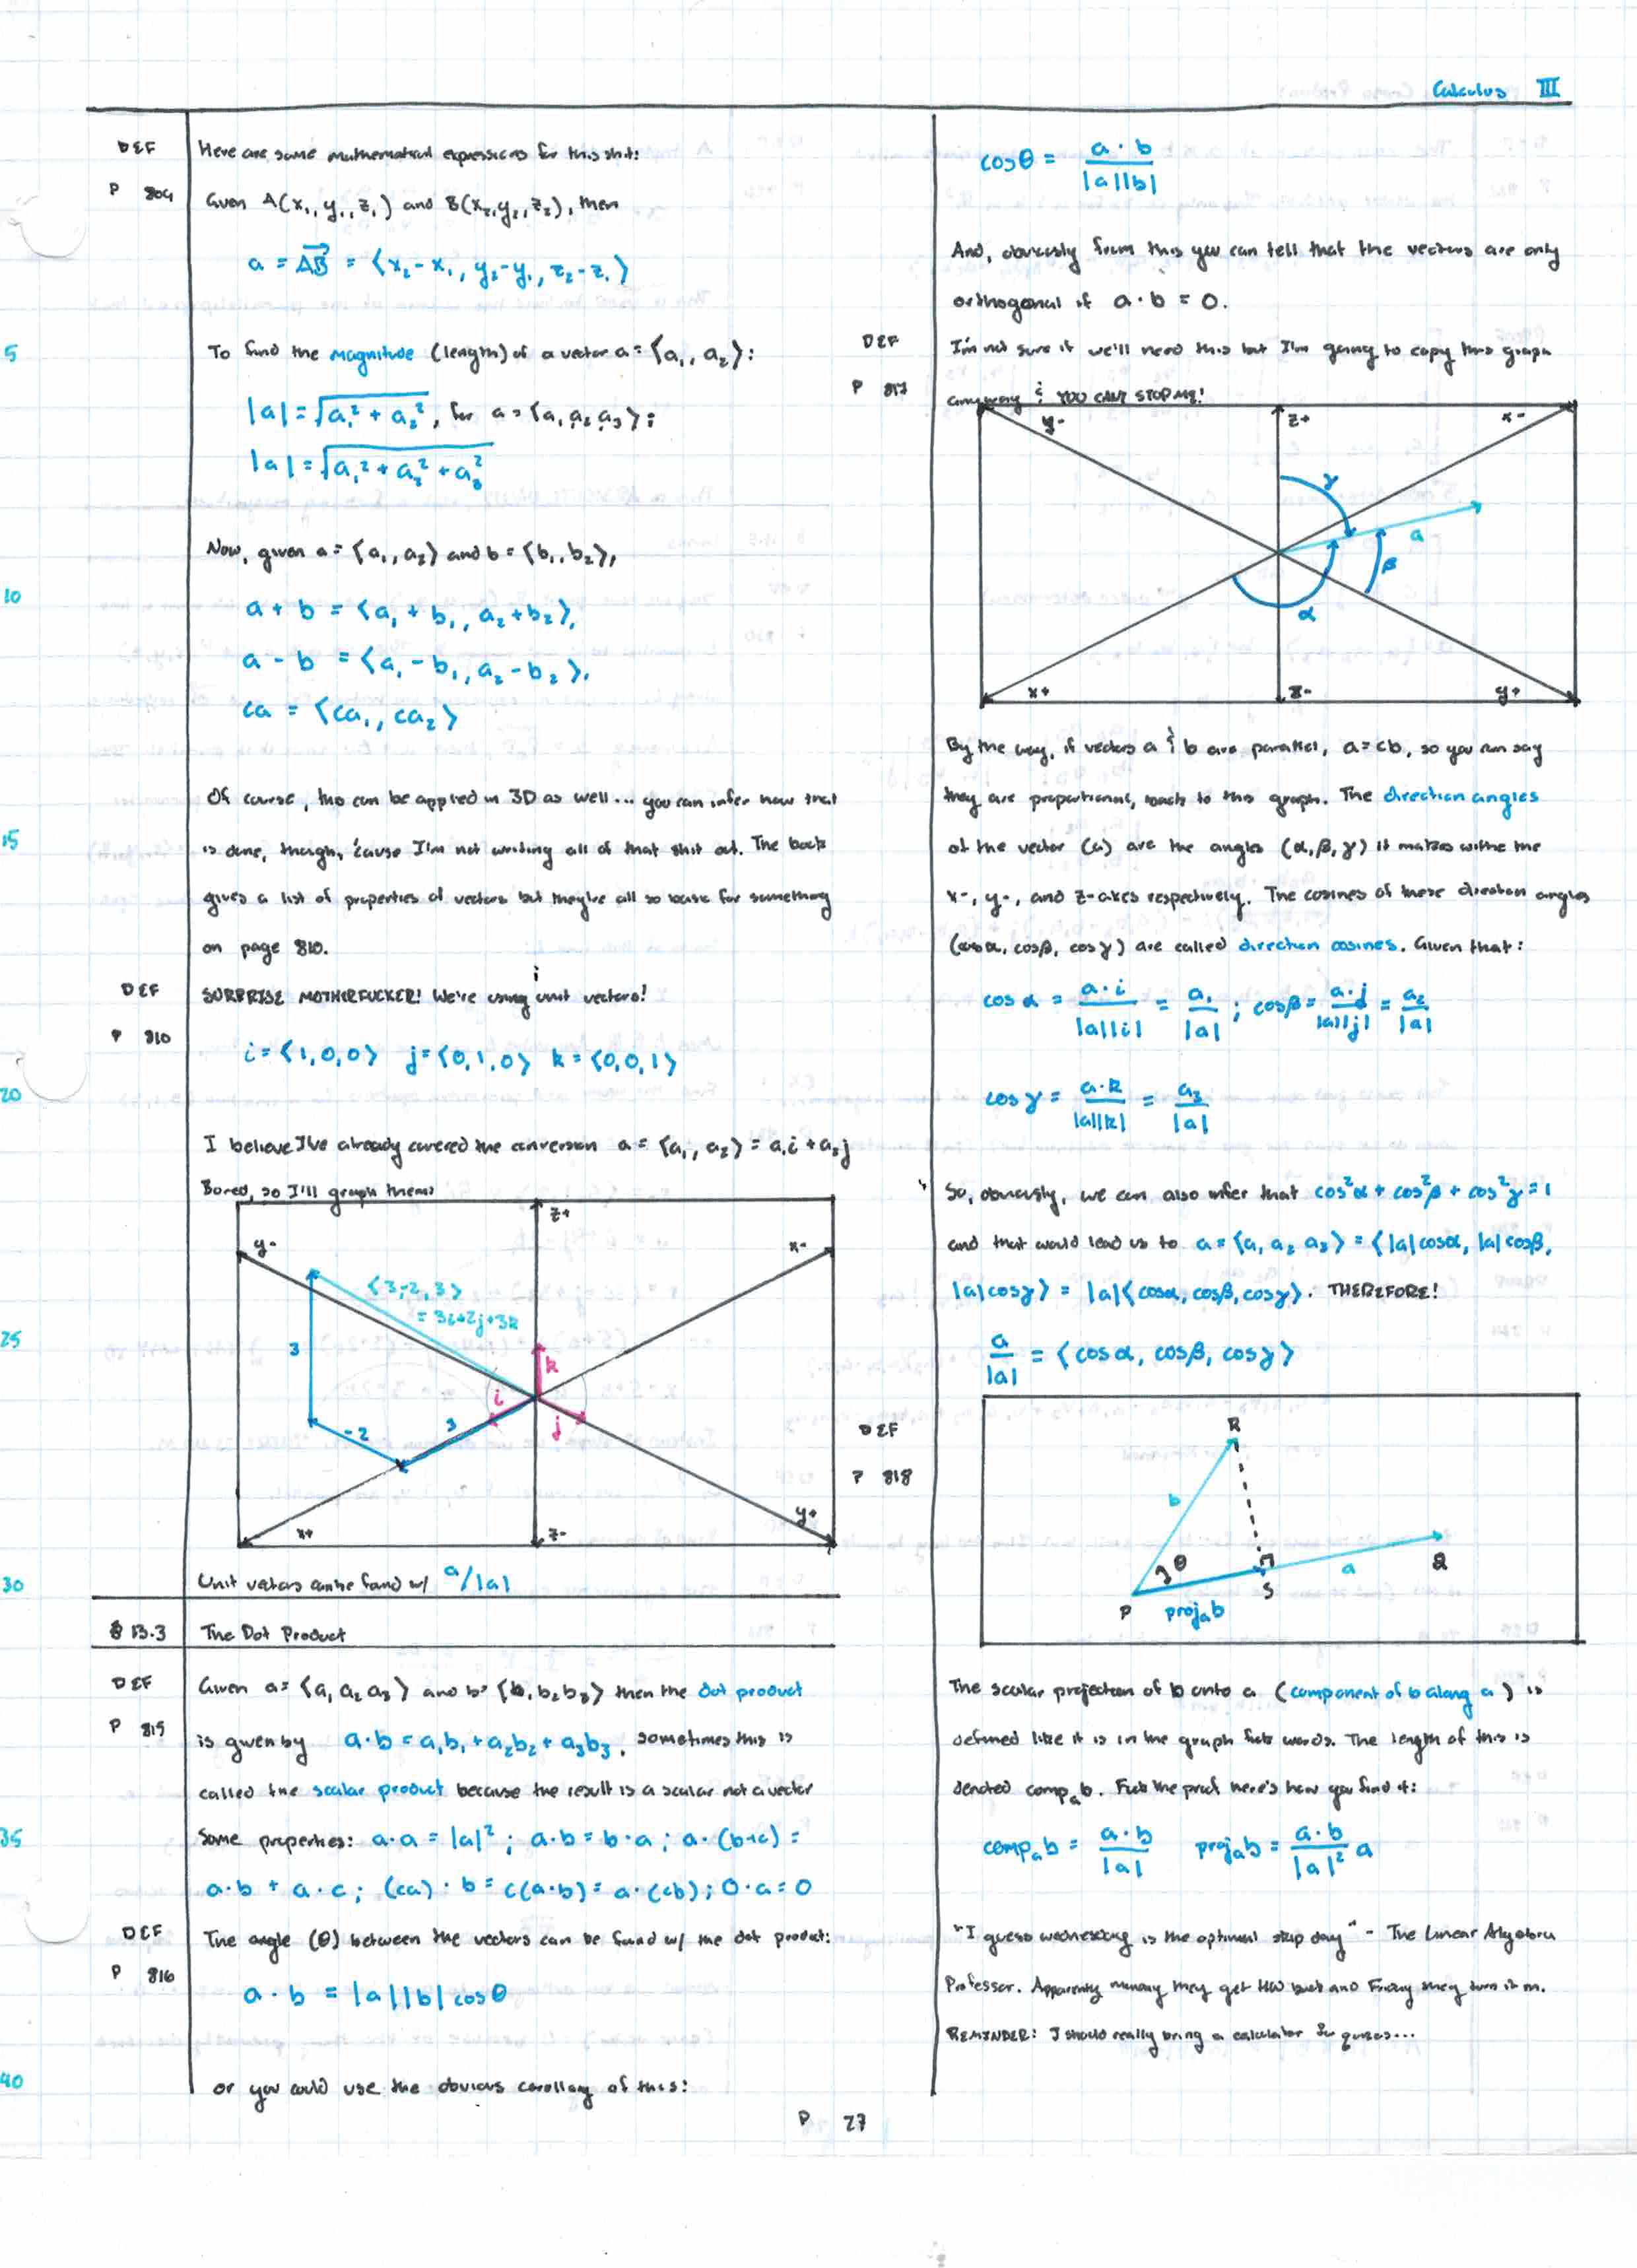 Calculus III
DEF
P 804
Here are some mathematical expressions for this shit:
Given A(x₁, y₁, z₁) and B(x₂, y₂, z₂), then
a = AB = ⟨x₂-x₁, y₂-y₁, z₂-z₁⟩
5
To find the magnitude (length) of a vector a = ⟨a₁, a₂⟩:
|a| = √a₁² + a₂², for a = ⟨a₁ a₂ a₃⟩:
|a| = √a₁² + a₂² + a₃²
Now, given a = ⟨a₁, a₂⟩ and b = ⟨b₁, b₂⟩,
10
a + b = ⟨a₁ + b₁, a₂ + b₂⟩,
a - b = ⟨a₁ - b₁, a₂ - b₂⟩,
ca = ⟨ca₁, ca₂⟩
Of course, this can be applied in 3D as well... you can infer how that
15
is done, though, 'cause I'm not writing all of that shit out. The book
gives a list of properties of vectors but they're all so basic for something
on page 810.
DEF
P 810
SURPRISE MOTHERFUCKER! We're using unit vectors!
i = ⟨1,0,0⟩ j = ⟨0,1,0⟩ k = ⟨0,0,1⟩
20
I believe I've already covered the conversion a = ⟨a₁, a₂⟩ = a₁i + a₂j
Bored, so I'll graph them:
z+
y-
x-
⟨3,-2,3⟩
= 3i+2j+3k
25
3
k
i
j
-2
3
x+
z-
y+
30
Unit vectors can be found w/ a/|a|
§ 13.3 The Dot Product
DEF
P 815
Given a = ⟨a₁ a₂ a₃⟩ and b = ⟨b₁ b₂ b₃⟩ then the dot product
is given by a·b = a₁b₁ + a₂b₂ + a₃b₃. sometimes this is
called the scalar product because the result is a scalar not a vector
35
Some properties: a·a = |a|²; a·b = b·a; a·(b+c) =
a·b + a·c; (ca)·b = c(a·b) = a·(cb); 0·a = 0
DEF
P 816
The angle (θ) between the vectors can be found w/ the dot product:
a · b = |a||b| cosθ
40
or you could use the obvious corollary of this:
cosθ = a · b / |a||b|
And, obviously from this you can tell that the vectors are only
orthogonal if a · b = 0.
DEF
P 817
I'm not sure if we'll need this but I'm going to copy this graph
anyway & YOU CAN'T STOP ME!
y-
z+
x-
γ
a
β
α
x+
z-
y+
By the way, if vectors a & b are parallel, a = cb, so you can say
they are proportional, back to this graph. The direction angles
of the vector (a) are the angles (α, β, γ) it makes withe the
x-, y-, and z-axes respectively. The cosines of these direction angles
(cosα, cosβ, cosγ) are called direction cosines. Given that:
cos α = a·i / |a||i| = a₁ / |a| ; cosβ = a·j / |a||j| = a₂ / |a|
cosγ = a·k / |a||k| = a₃ / |a|
So, obviously, we can also infer that cos²α + cos²β + cos²γ = 1
and that would lead us to a = ⟨a₁ a₂ a₃⟩ = ⟨|a|cosα, |a|cosβ,
|a|cosγ⟩ = |a|⟨cosα, cosβ, cosγ⟩. THEREFORE!
a / |a| = ⟨cosα, cosβ, cosγ⟩
DEF
P 818
R
b
θ
P
S
a
Q
projₐb
The scalar projection of b onto a (component of b along a) is
defined like it is in the graph fuck words. The length of this is
denoted compₐb. Fuck the proof here's how you find it:
compₐb = a·b / |a| projₐb = a·b / |a|² a
"I guess wednesday is the optimal skip day" - The Linear Algebra
Professor. Apparently monday they get HW back and Friday they turn it in.
REMINDER: I should really bring a calculator for quizzes...
P 27